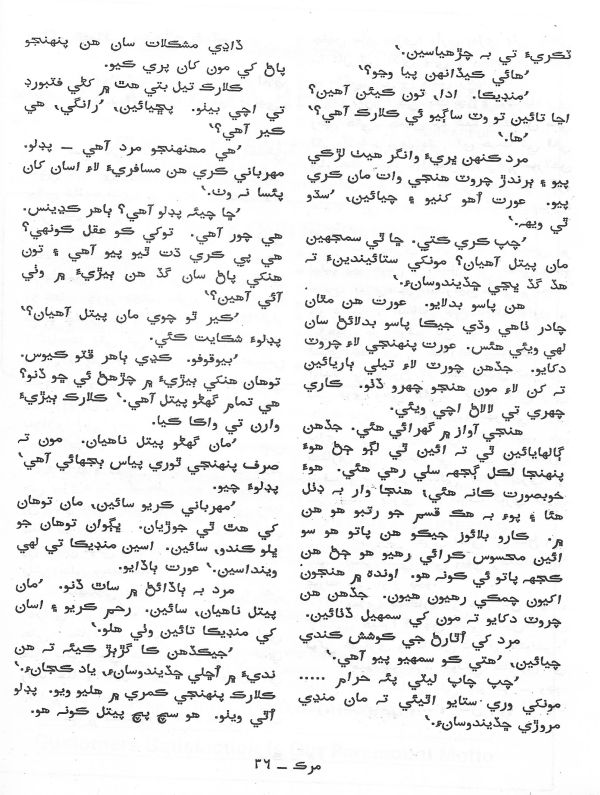 ٽڪريءَ تي به چڙهياسين.‘
’هائي ڪيڏانهن پيا وڃو؟‘
’منڊيڪا. ادا، تون ڪيئن آهين؟
اڃا تائين تو وٽ ساڳيو ئي ڪلارڪ آهي؟‘
’ها.‘
مرد ڪنهن پريءَ وانگر هيٺ لڙڪي
پيو ۽ ٻرندڙ چروٽ هنجي وات مان ڪري
پيو. عورت اُهو کنيو ۽ چيائين، ’سڌو
ٿي ويهه.‘
’چپ ڪري ڪتي. ڇا ٿي سمجهين
مان پيتل آهيان؟ مونکي ستائيندينءَ ته
هڏ گڏ ڀڃي ڇڏيندوسانءِ.‘
هن پاسو بدلايو. عورت هن مٿان
چادر ٺاهي وڌي جيڪا پاسو بدلائڻ سان
لهي ويئي هئس. عورت پنهنجي لاءِ چروٽ
دکايو. جڏهن چورٽ لاءِ تيلي ٻاريائين
ته کن لاءِ مون هنجو چهرو ڏٺو. ڪاري
چهري تي لالاڻ اچي ويئي.
هنجي آواز ۾ گهرائي هئي. جڏهن
ڳالهايائين ٿي ته ائين ٿي لڳو ڄڻ هوءَ
پنهنجا لڪل ڳجهه سلي رهي هئي. هوءَ
خوبصورت ڪانه هئي، هنجا وار به ڊٺل
هئا ۽ پوءِ به هڪ قسم جو رتبو هو هن
۾. ڪارو بلائوز جيڪو هن پاتو هو سو
ائين محسوس ڪرائي رهيو هو ڄڻ هن
ڪجهه پاتو ئي ڪونه هو. اونده ۾ هنجون
اکيون چمڪي رهيون هيون. جڏهن هن
چروٽ دکايو ته مون کي سمهيل ڏٺائين.
مرد کي اُٿارڻ جي ڪوشش ڪندي
چيائين، ’هتي ڪو سمهيو پيو آهي.‘
’چپ چاپ ليٽي پئه حرام .....
مونکي وري ستايو اٿيئي ته مان منڊي
مروڙي ڇڏيندوسانءِ.‘
ڏاڍي مشڪلات سان هن پنهنجو
پاڻ کي مون کان پري ڪيو.
ڪلارڪ تيل بتي هٿ ۾ کڻي فٽبورڊ
تي اچي بيٺو. پڇيائين، ’رانگي، هي
ڪير آهي؟‘
’هي مهنهنجو مرد آهي – پدلو.
مهرباني ڪري هن مسافريءَ لاءِ اسان کان
پئسا نه وٺ.‘
’ڇا چيئه پدلو آهي؟ ٻاهر ڪڍينس.
هي چور آهي. توکي ڪو عقل ڪونهي؟
هي پي ڪري ڌت ٿيو پيو آهي ۽ تون
هنکي پاڻ سان گڏ هن ٻيڙيءَ ۾ وٺي
آئي آهين؟‘
’ڪير ٿو چوي مان پيتل آهيان؟‘
پدلوءَ شڪايت ڪئي.
’بيوقوفو. ڪڍي ٻاهر ڦٽو ڪيوس.
توهان هنکي ٻيڙيءَ ۾ چڙهڻ ئي ڇو ڏنو؟
هي تمام گهڻو پيتل آهي.‘ ڪلارڪ ٻيڙيءَ
وارن تي واڪا ڪيا.
’مان گهڻو پيتل ناهيان. مون ته
صرف پنهنجي ٿوري پياس بجهائي آهي‘
پدلوءَ چيو.
’مهرباني ڪريو سائين، مان توهان
کي هٿ ٿي جوڙيان. ڀڳوان توهان جو
ڀلو ڪندو، سائين. اسين منڊيڪا تي لهي
وينداسين.‘ عورت ٻاڏايو.
مرد به ٻاڏائڻ ۾ ساٿ ڏنو. ’مان
پيتل ناهيان، سائين. رحم ڪريو ۽ اسان
کي منڊيڪا تائين وٺي هلو.‘
’جيڪڏهن ڪا گڙٻڙ ڪيئه ته هن
نديءَ ۾ اُڇلي ڇڏيندوسانءِ، ياد ڪجانءِ.‘
ڪلارڪ پنهنجي ڪمري ۾ هليو ويو. پدلو
اُٿي ويٺو. هو سچ پچ پيتل ڪونه هو.
مرڪ – ٣٦